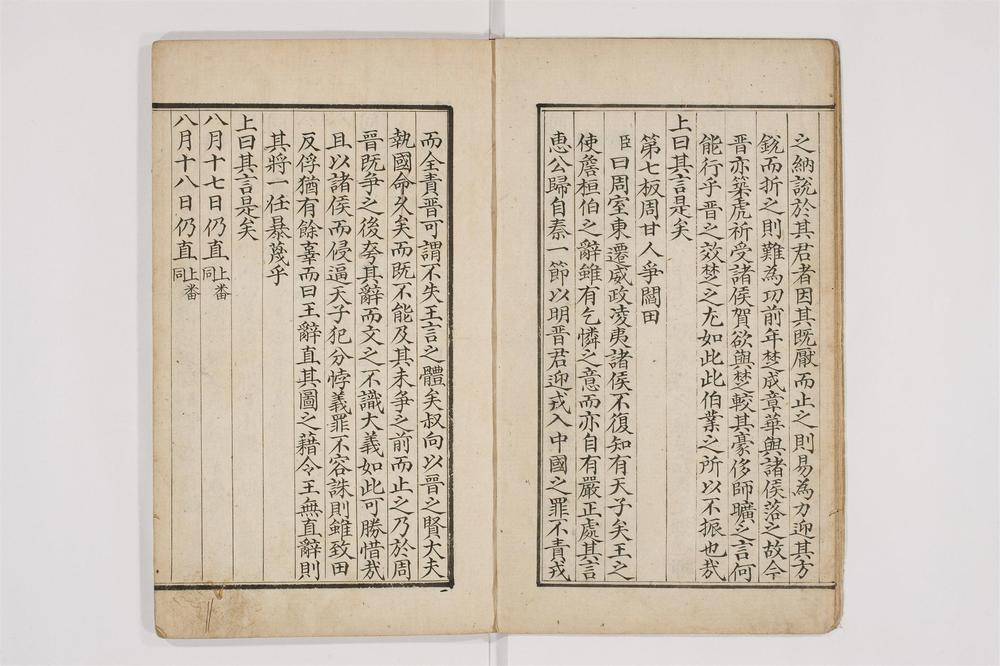 之納説於其君者因其既厭而止之則易為力迎其方
銳而折之則難為功前年楚成章華與諸侯落之故今
晉亦築虎祈受諸侯賀欲與楚較其豪侈師曠之言何
能行乎晉之效楚之尤如此此伯業之所以不振也哉
上曰其言是矣
第七板周甘人爭閻田
臣曰周室東遷威政凌夷諸侯不復知有天子矣王之
使詹桓伯之辭雖有乞憐之意而亦自有嚴正處其言
惠公歸自秦一節以明晉君迎戎入中國之罪不責戎
而全責晉可謂不失王言之體矣叔向以晉之賢大夫
執國命久矣而既不能及其未爭之前而止之乃於周
晉既爭之後夸其辭而文之不識大義如此可勝惜哉
且以諸侯而侵逼天子犯分悖義罪不容誅則雖致田
反俘猶有餘辜而曰王辭直其圖之藉令王無直辭則
其將一任暴蔑乎
上曰其言是矣
八月十七日仍直上番
八月十八日仍直上番同